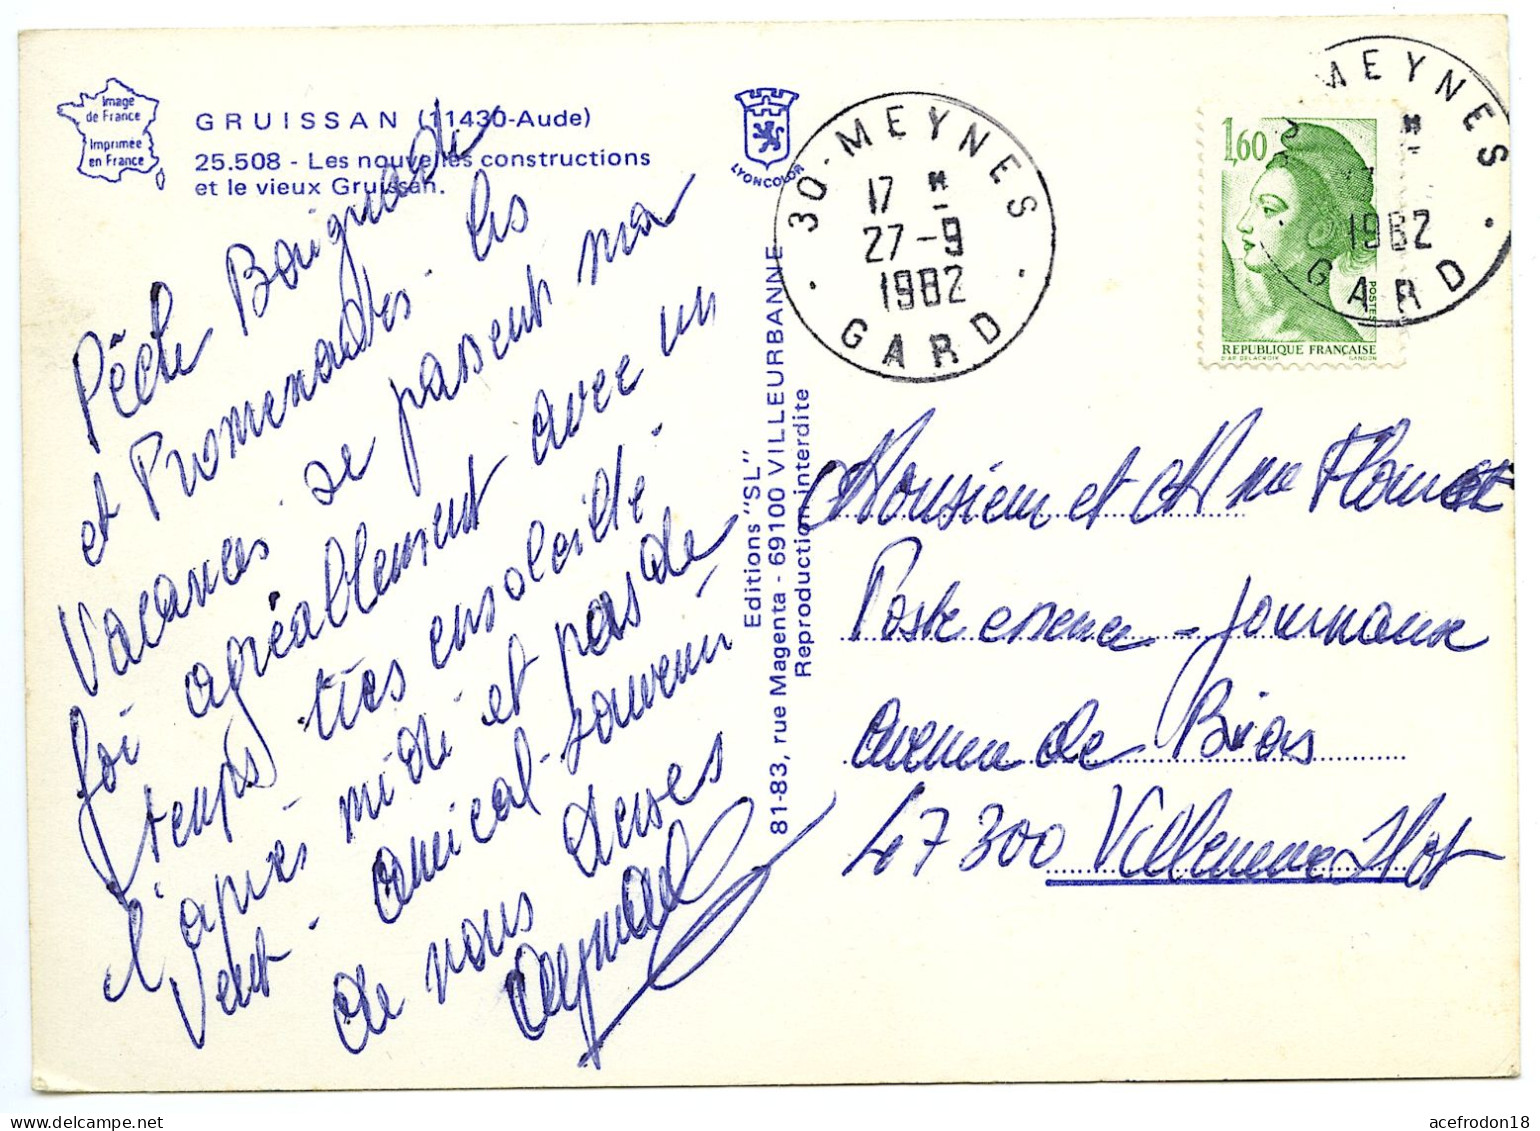 Image
de France
Imprimée
en France
GRUISSAN (11430-Aude)
25.508 - Les nouvelles constructions
et le vieux Gruissan.
LYONCOLOR
30-MEYNES
17 H
27-9
1982
GARD
1,60
POSTES
REPUBLIQUE FRANÇAISE
D'AP. DELACROIX GANDON
MEYNES
1982
GARD
Pêche Baignade
et Promenades. les
Vacances se passent ma
foi agréablement avec un
temps très ensoleillé.
l'après midi et pas de
Vent. amical souvenir
de nous deux
Editions "SL"
81-83, rue Magenta - 69100 VILLEURBANNE
Reproduction interdite
Monsieur et Mme
Poste essence - journaux
avenue de Bias
47300 Villeneuve s/Lot
acefrodon18